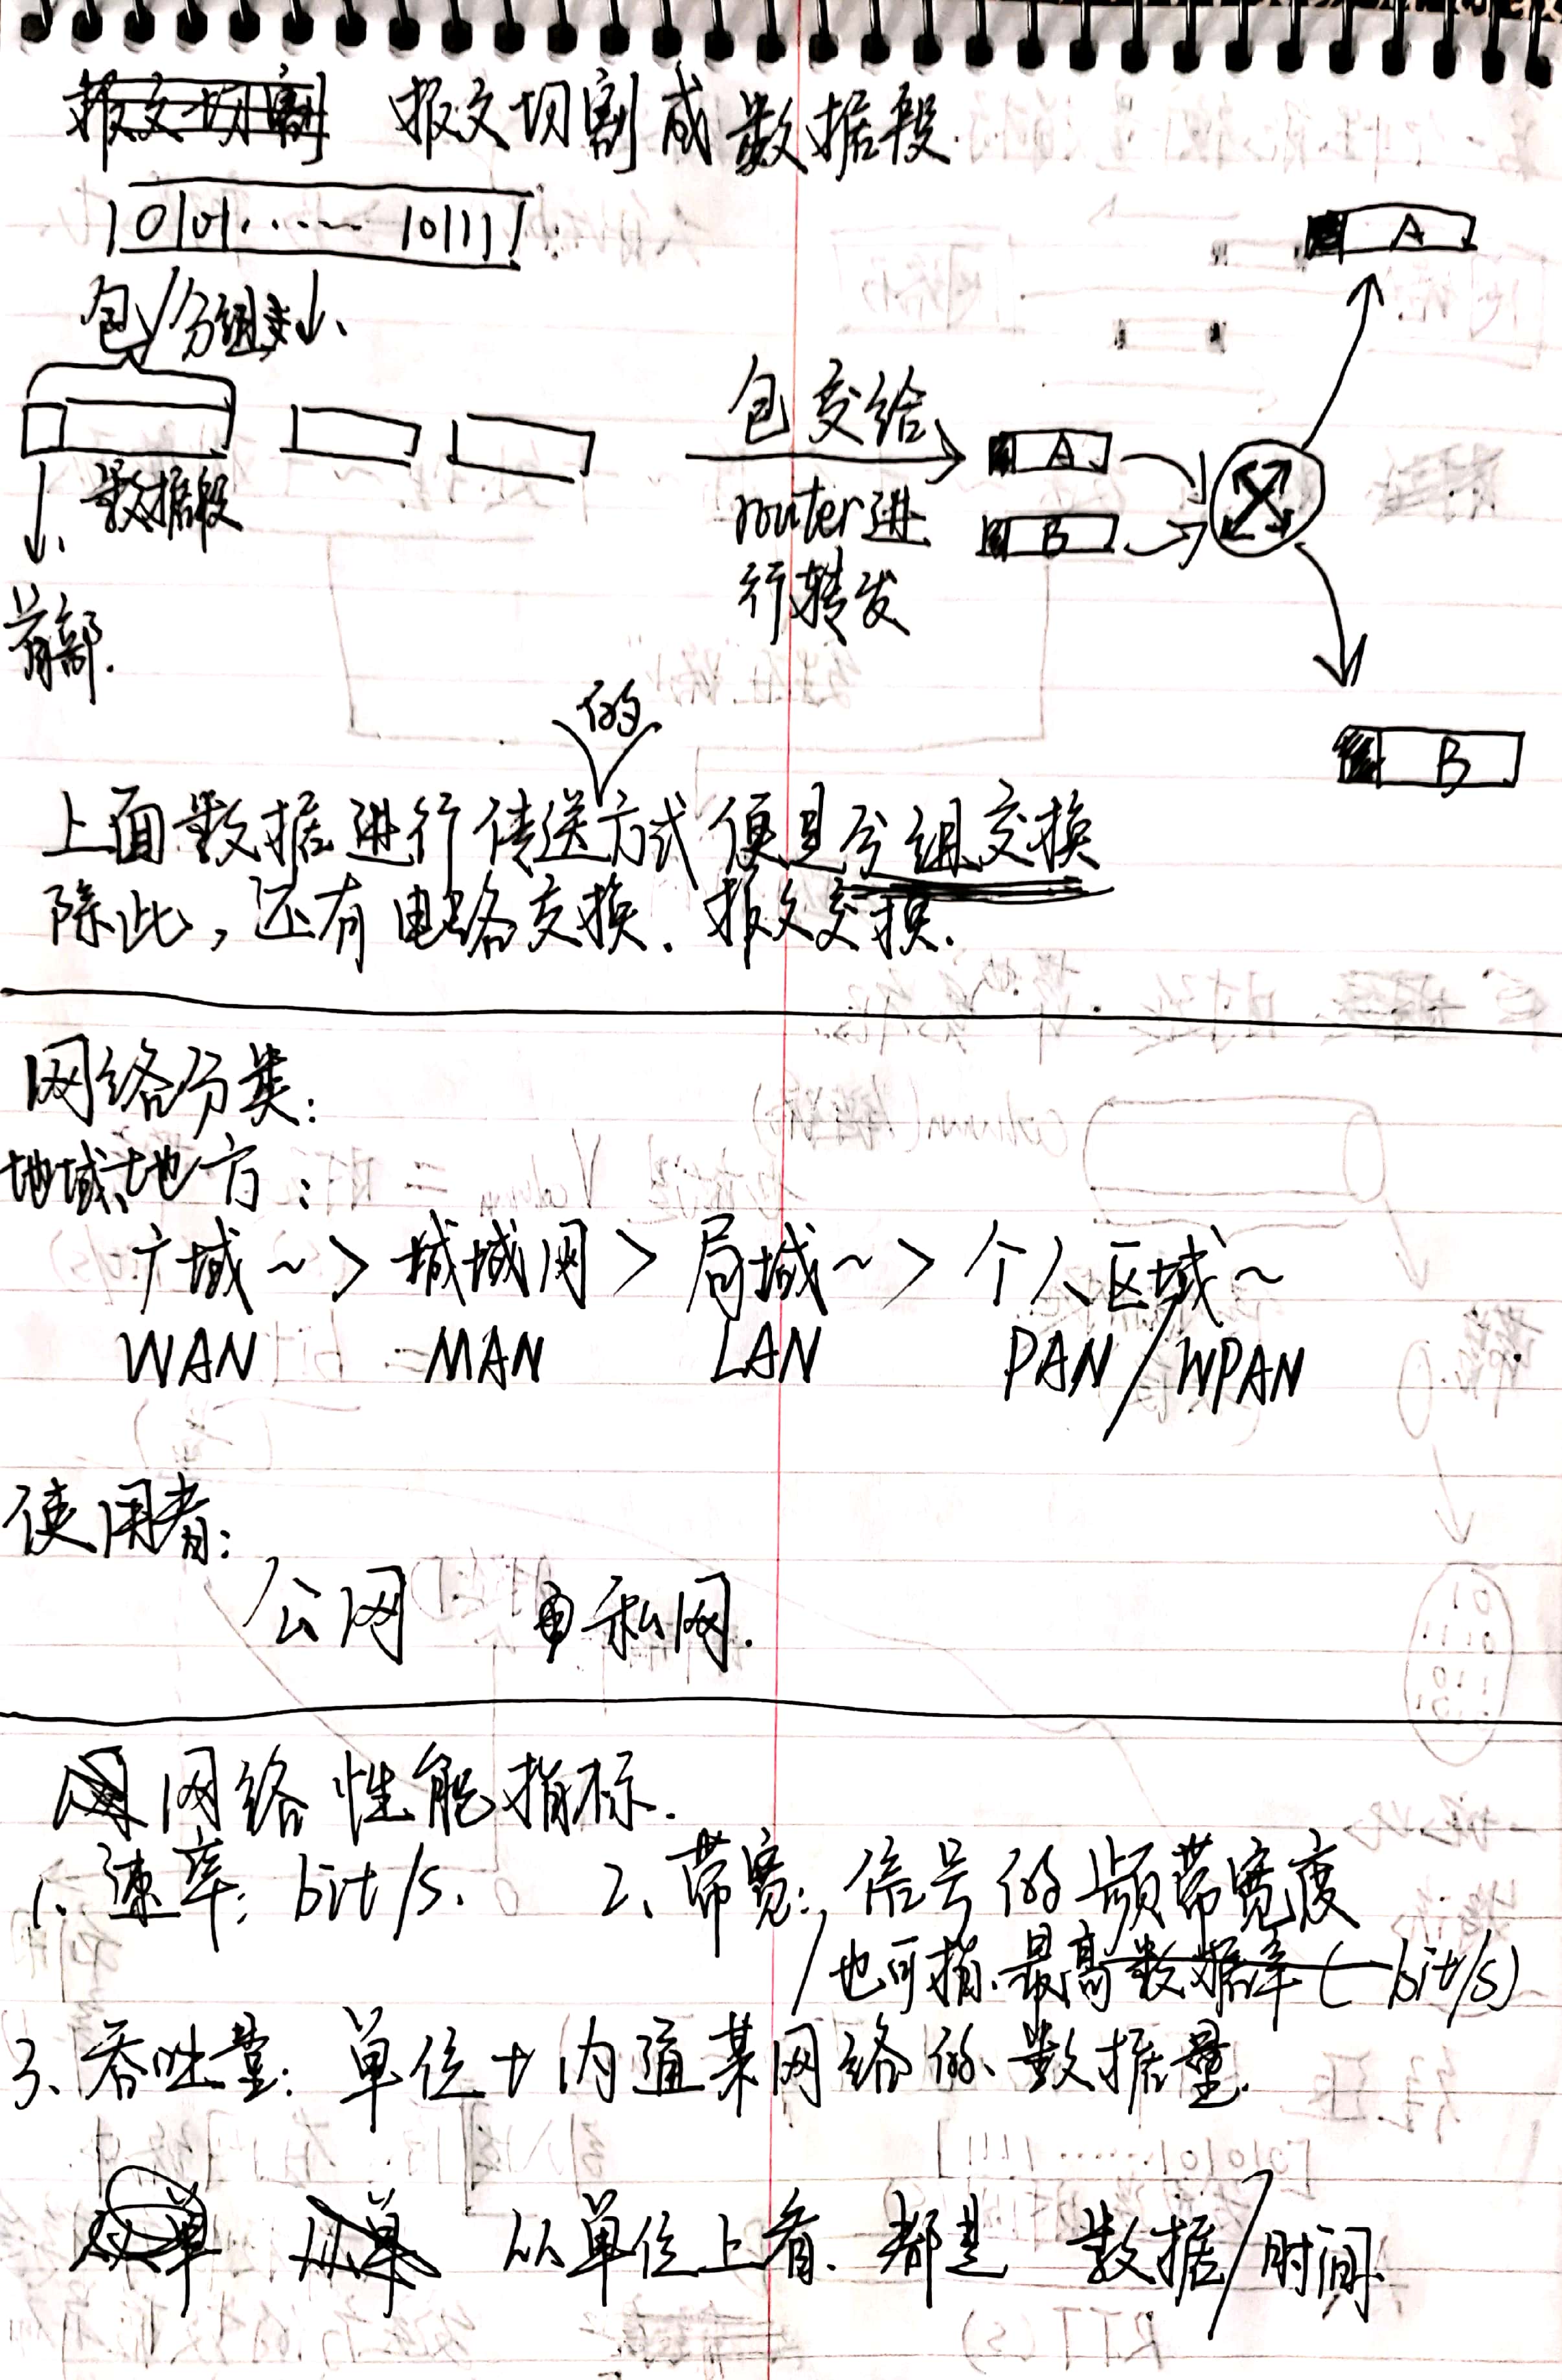 报文切割 报文切割成数据段.
10101...... 101111
包/分组
数据段
首部.
包交给
router进
行转发
A
B
A
B
的
上面数据进行传送方式便是分组交换
除此，还有电路交换. 报文交换.
网络分类:
地域、地方:
广域~ > 城域网 > 局域~ > 个人区域~
WAN MAN LAN PAN/WPAN
使用者:
公网 私网.
网络性能指标.
1. 速率: bit/s. 2、带宽: 信号的频带宽度
也可指最高数据率(bit/s)
3、吞吐量: 单位t内通某网络的数据量.
从单 从单 从单位上看. 都是 数据/时间.